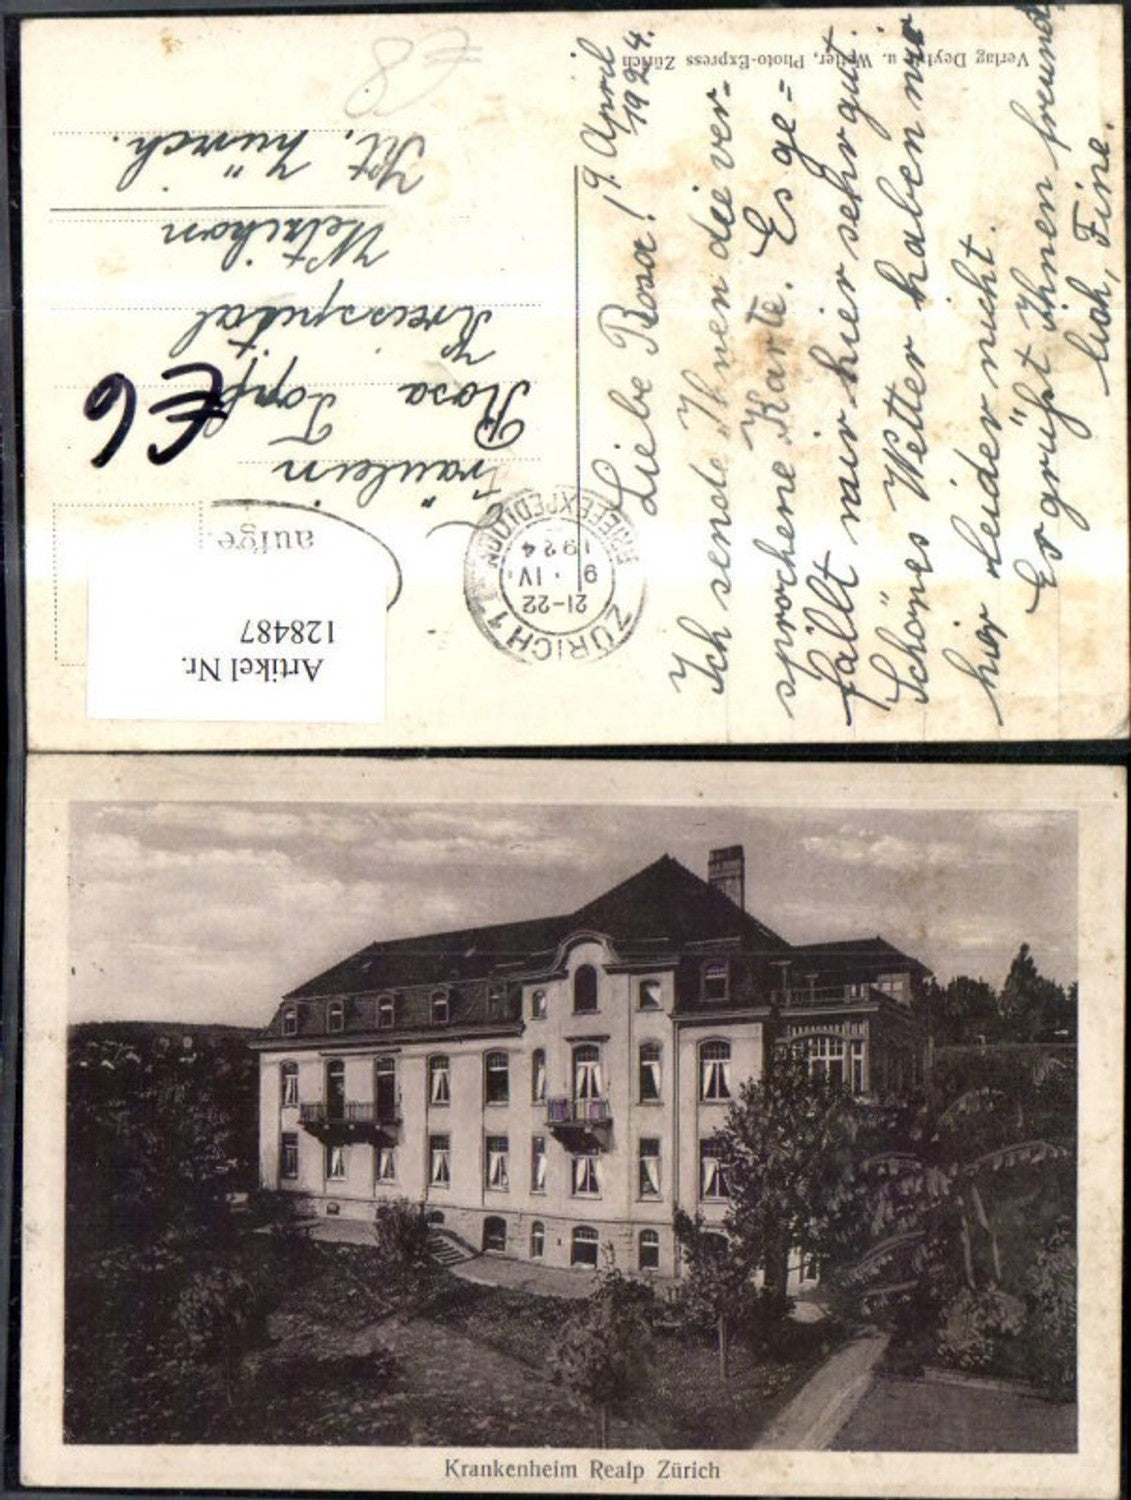 Verlag Deyhle u. Wetter, Photo-Express Zürich
9. April
1924.
Liebe Rosa!
Ich sende Ihnen die ver-
sprochene Karte. Es ge=
fällt mir hier sehr gut.
Schönes Wetter haben wir
hier leider nicht.
Es grüßt Ihnen freund
lich, Fine.
Fräulein
Rosa Topf
Kreisspital
Wetzikon
Kt. Zürich.
€8
€6
ZÜRICH 1
21-22
9.IV.
1924
BRIEFEXPEDITION
aufge
Artikel Nr.
128487
Krankenheim Realp Zürich